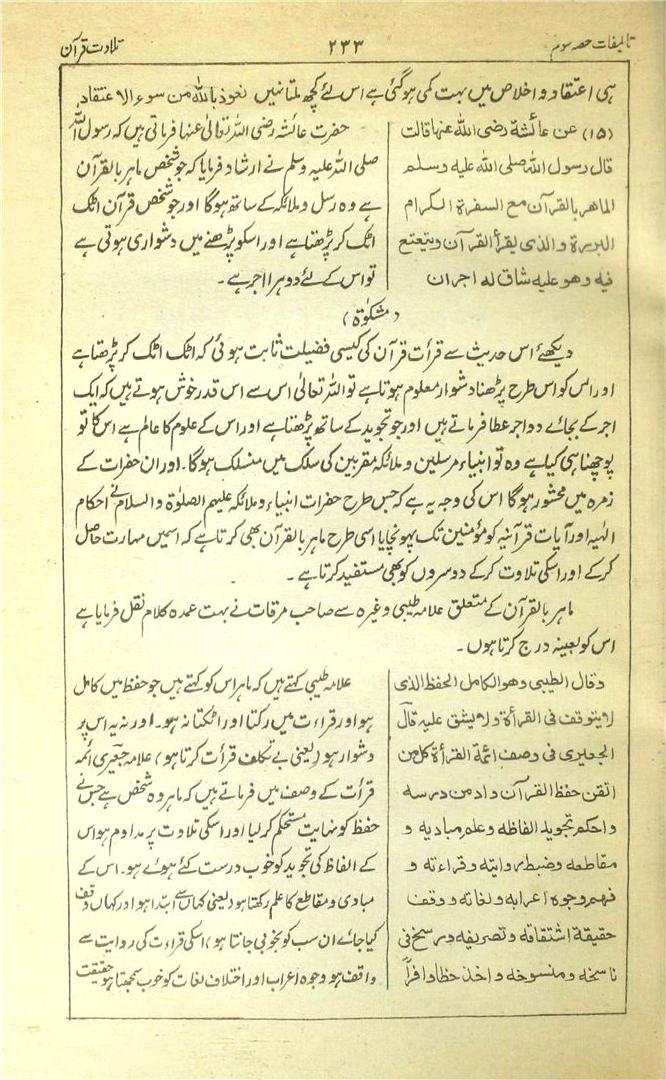 تالیفات حصہ سوم
۲۳۳
تلاوت قرآن
ہی اعتقاد و اخلاص میں بہت کمی ہوگئی ہے اس لئے کچھ ملتا نہیں نعوذ باللہ من سوء الاعتقاد۔
(۱۵) عن عائشة رضی اللہ عنہا قالت
قال رسول اللہ صلی اللہ علیہ وسلم
الماھر بالقرآن مع السفرة الکرام
البررة والذی یقرأ القرآن ویتعتع
فیہ وھو علیہ شاق لہ اجران
حضرت عائشہ رضی اللہ تعالیٰ عنہا فرماتی ہیں کہ رسول اللہ
صلی اللہ علیہ وسلم نے ارشاد فرمایا کہ جو شخص ماہر بالقرآن
ہے وہ رسل و ملائکہ کے ساتھ ہوگا اور جو شخص قرآن اٹک
اٹک کر پڑھتا ہے اور اسکو پڑھنے میں دشواری ہوتی ہے
تو اس کے لئے دوہرا اجر ہے۔
(مشکوٰۃ)
دیکھئے اس حدیث سے قرأت قرآن کی کیسی فضیلت ثابت ہوئی کہ اٹک اٹک کر پڑھتا ہے
اور اس کو اس طرح پڑھنا دشوار معلوم ہوتا ہے تو اللہ تعالیٰ اس سے اس قدر خوش ہوتے ہیں کہ ایک
اجر کے بجائے دو اجر عطا فرماتے ہیں اور جو تجوید کے ساتھ پڑھتا ہے اور اس کے علوم کا عالم ہے اس کا تو
پوچھنا ہی کیا ہے وہ تو انبیاء مرسلین و ملائکہ مقربین کی سلک میں منسلک ہوگا۔ اور ان حضرات کے
زمرہ میں محشور ہوگا اس کی وجہ یہ ہے کہ جس طرح حضرات انبیاء و ملائکہ علیہم الصلوٰۃ والسلام نے احکام
الٰہیہ اور آیات قرآنیہ کو مؤمنین تک پہونچایا اسی طرح ماہر بالقرآن بھی کرتا ہے کہ اسمیں مہارت حاصل
کر کے اور اسکی تلاوت کر کے دوسروں کو بھی مستفید کرتا ہے۔
ماہر بالقرآن کے متعلق علامہ طیبی وغیرہ سے صاحب مرقات نے بہت عمدہ کلام نقل فرمایا ہے
اس کو بعینہ درج کرتا ہوں۔
وقال الطیبی وھو الکامل الحفظ الذی
لا یتوقف فی القرأة ولا یشق علیہ قال
الجعبری فی وصف ائمة القرأة کل من
اتقن حفظ القرآن وادمن درسہ
واحکم تجوید الفاظہ وعلم مبادیہ و
مقاطعہ وضبط روایتہ وقراءتہ و
فہم وجوہ اعرابہ ولغاتہ ووقف
حقیقة اشتقاقہ وتصریفہ ورسخ فی
ناسخہ ومنسوخہ واخذ حظا وافراً
علامہ طیبی کہتے ہیں کہ ماہر اس کو کہتے ہیں جو حفظ میں کامل
ہو اور قراءت میں رکتا اور اٹکتا نہ ہو۔ اور نہ یہ اس پر
دشوار ہو (یعنی بے تکلف قرأت کرتا ہو) علامہ جعبری ائمہ
قرأت کے وصف میں فرماتے ہیں کہ ماہر وہ شخص ہے جس نے
حفظ کو نہایت مستحکم کر لیا اور اسکی تلاوت پر مداوم ہو اس
کے الفاظ کی تجوید کو خوب درست کئے ہوئے ہو۔ اس کے
مبادی و مقاطع کا علم رکھتا ہو (یعنی کہاں سے ابتدا ہو اور کہاں وقف
کیا جائے ان سب کو بخوبی جانتا ہو) اسکی قراءت کی روایت سے
واقف ہو وجوہ اعراب اور اختلاف لغات کو خوب سمجھتا ہو حقیقت